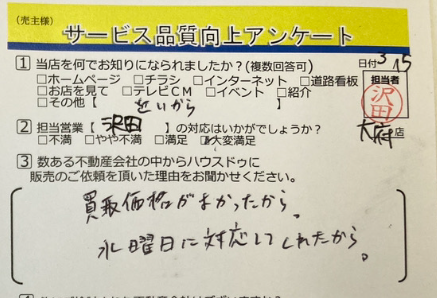 （売主様）
サービス品質向上アンケート
1 当店を何でお知りになられましたか？（複数回答可）
日付 3/15
□ホームページ □チラシ □インターネット □道路看板
□お店を見て □テレビCM □イベント □紹介
□その他【 近いから 】
担当者
沢田
2 担当営業【 沢田 】の対応はいかがでしょうか？
大府店
□不満 □やや不満 □満足 ☑大変満足
3 数ある不動産会社の中からハウスドゥに
販売のご依頼を頂いた理由をお聞かせください。
買取価格がよかったから。
水曜日に対応してくれたから。